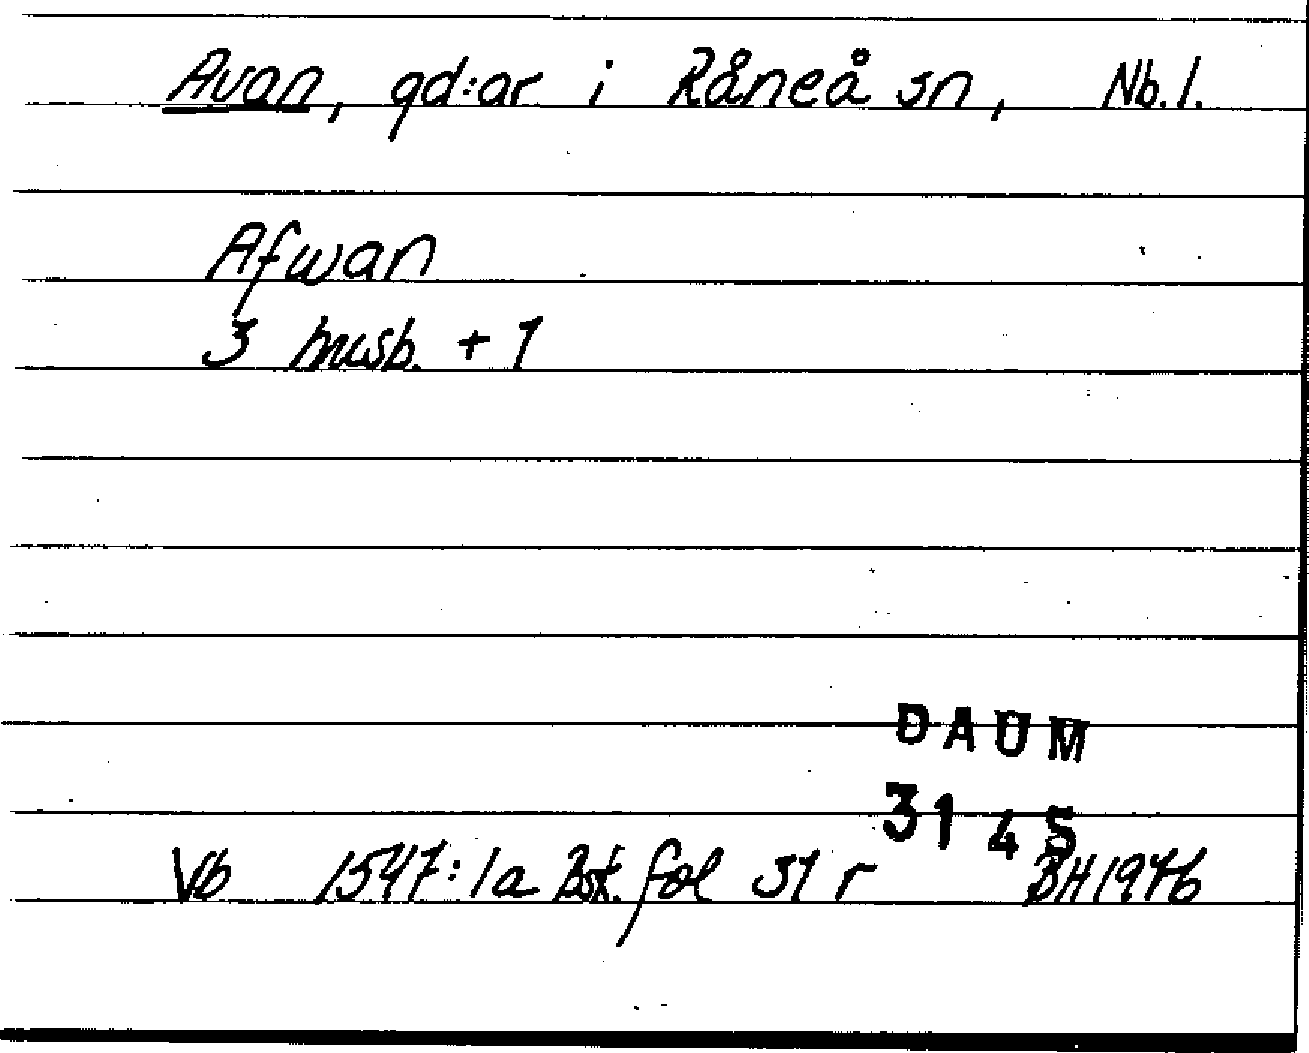 Avan, gd:ar i Råneå sn, Nb.l.
Afwan
3 husb. + 1
DAUM
3145
Vb 1547:1a Bsk. fol 31 r BH 1976